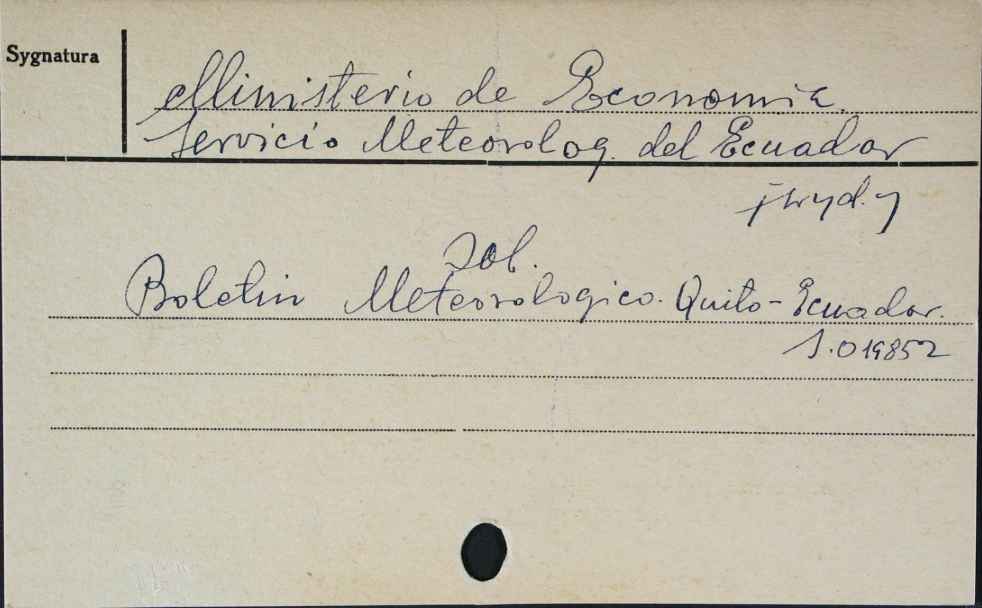 Sygnatura
Ministerio de Economia.
Servicio Meteorolog. del Ecuador
zob.
Boletin Meteorologico. Quito-Ecuador.
S.019852